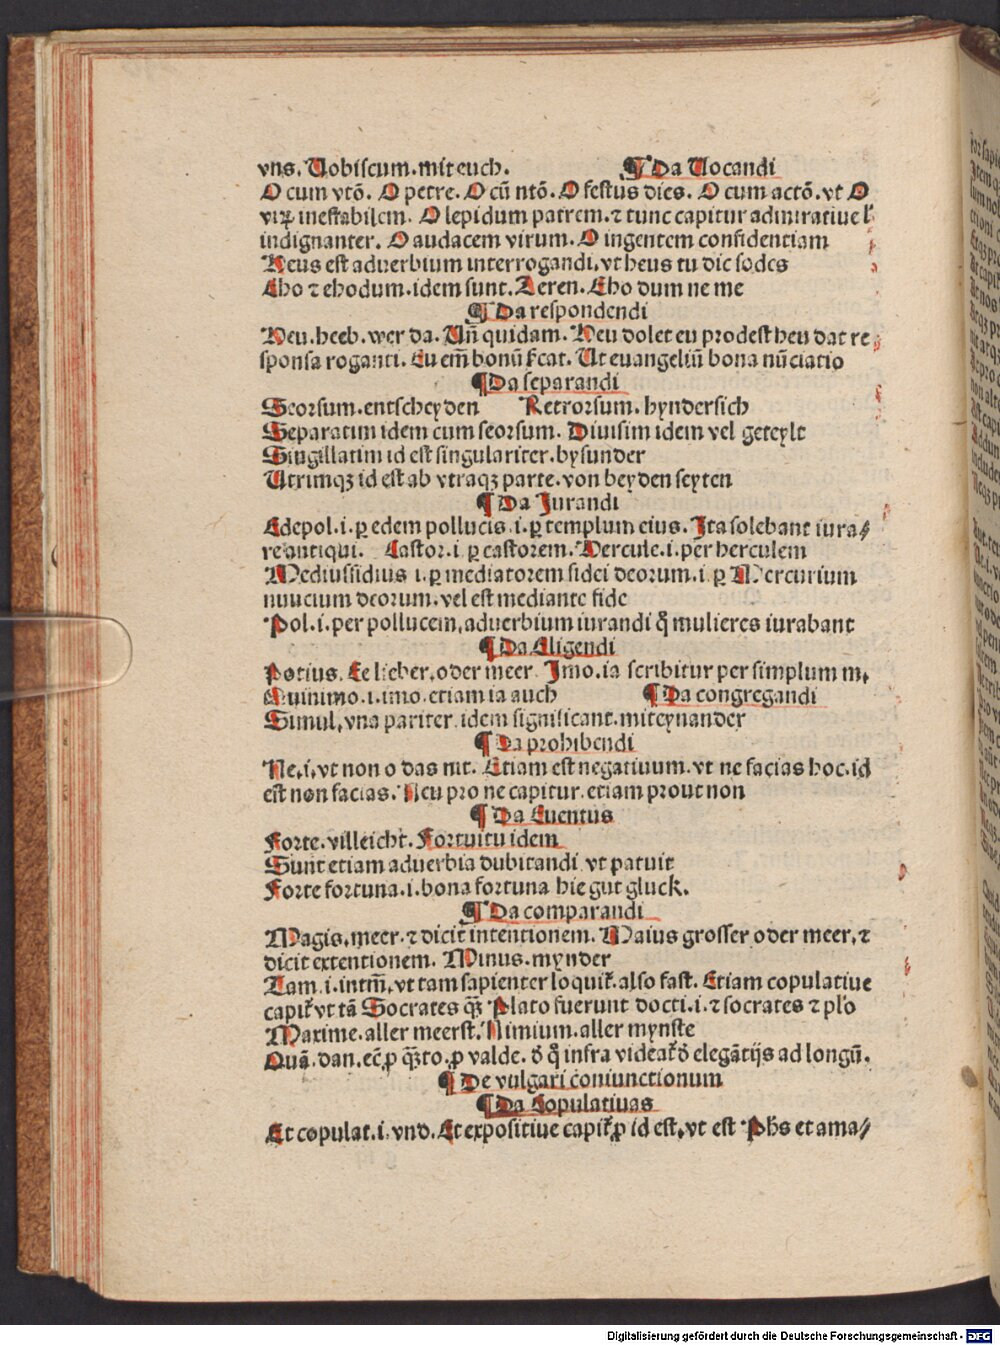 vns. Uobiscum. mit euch. ¶ Da Uocandi
O cum vtō. O petre. O cū ntō. O festus dies. O cum actō. vt O
viꝝ inestabilem. O lepidum patrem. ⁊ tunc capitur admiratiue l'
indignanter. O audacem virum. O ingentem confidentiam
Heus est aduerbium interrogandi. vt heus tu dic sodes
Eho ⁊ ehodum. idem sunt. Teren. Eho dum ne me
¶ Da respondendi
Heu. heeb. wer da. Un̄ quidam. Heu dolet eu prodest heu dat re
sponsa roganti. Eu em̄ bonū ſcat. Ut euangeliū bona nūciatio
¶ Da separandi
Seorsum. entscheyden Retrorsum. hyndersich
Separatim idem cum seorsum. Diuisim idem vel geteylt
Singillatim id est singulariter. bysunder
Utrimqꝫ id est ab vtraqꝫ parte. von beyden seyten
¶ Da Jurandi
Edepol. i. ꝑ edem pollucis. i. ꝑ templum eius. Ita solebant iura⸗
re antiqui. Castor. i. ꝑ castorem. Hercule. i. per herculem
Mediussidius i. ꝑ mediatorem fidei deorum. i. ꝑ Mercurium
nuucium deorum. vel est mediante fide
Pol. i. per pollucem, aduerbium iurandi ꝙ mulieres iurabant
¶ Da Eligendi
Potius. Ee lieber, oder meer Imo. ia scribitur per simplum m,
Quinimo. i. imo. etiam ia auch ¶ Da congregandi
Simul, vna pariter. idem significant. miteynander
¶ Da prohibendi
Ne. i. vt non o das nit. Etiam est negatiuum. vt ne facias hoc. id
est non facias. Neu pro ne capitur. etiam prout non
¶ Da Euentus
Forte. villeicht. Fortuitu idem
Sunt etiam aduerbia dubitandi vt patuit
Forte fortuna. i. bona fortuna hie gut gluck.
¶ Da comparandi
Magis, meer. ⁊ dicit intentionem. Maius grosser oder meer, ⁊
dicit extentionem. Minus. mynder
Tam. i. intm̄, vt tam sapienter loquit̄. also fast. Etiam copulatiue
capit̄ vt tā Socrates qꝫ̄ Plato fuerunt docti. i. ⁊ socrates ⁊ plo
Maxime. aller meerst. Nimium. aller mynste
Quā. dan. ec̄. ꝓ qꝫ̄to. ꝓ valde. ꝺ ꝙ infra videat̄ ꝺ elegātijs ad longū.
¶ De vulgari coniunctionum
¶ Da Copulatiuas
Et copulat. i. vnd. Et expositiue capit̄ ꝓ id est, vt est Pħs et ama⸗
Digitalisierung gefördert durch die Deutsche Forschungsgemeinschaft - DFG